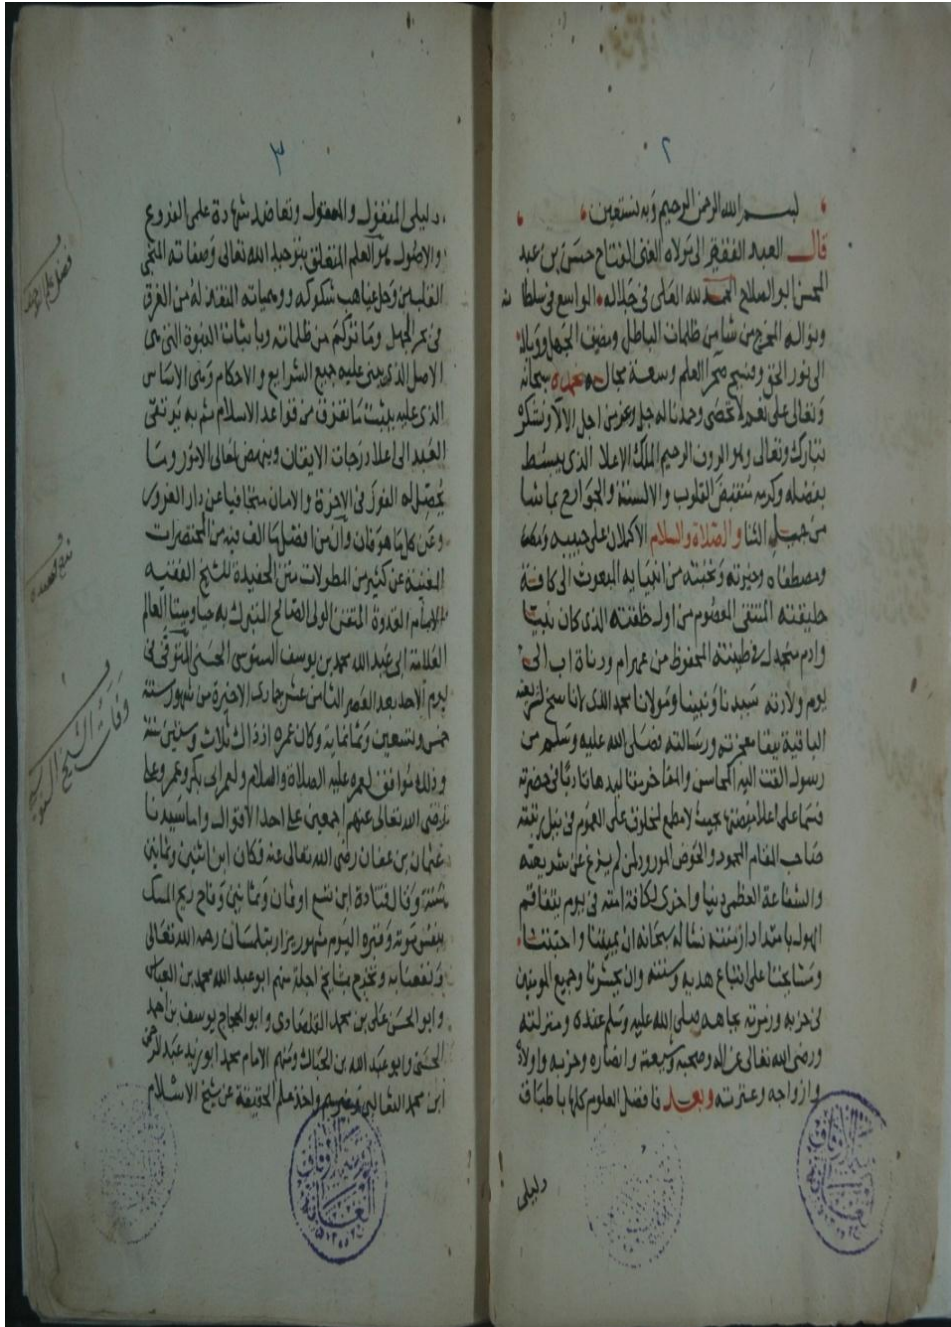 ٢
بسم الله الرحمن الرحيم وبه نستعين
قال العبد الفقير الى مولاه الغنى الفتاح حسن بن عبد
المحسن ابو الصلاح الحمد لله العلى فى جلاله الواسع فى سلطا نه
ونواله المخرج من شا من ظلمات الباطل الجهل ووباله
الى نور الحق العلم وسعة مجاله نحمده سبحانه
وتعالى على نعم لا تحصى وحدنا له جل وعز من اجل الآلا ونشكره
تبارك وتعالى وهو الروف الرحيم الملك الاعلا الذى يبسط
بفضله وكرمه القلوب والالسنة والجوارح بما شا
من جميل الثنا والصلاة والسلام الاكملان على حبيبه
ومصطفاه وخيرته ونخبته من انبيايه المبعوث الى كافة
خليقته المنتقى المعصوم من اول خلقته الذى كان نبيا
وادم منجدل فى طينته المحفوظ من
يوم ولادته سيدنا ونبينا ومولانا محمد الذى
الباقية ببقا معجزته ورسالته فصلى الله عليه وسلم من
رسول القت اليه المحاسن والمفاخر فى حضرته
بحيث لا مطمع لمخلوق على العموم فى نيل رتبته
صاحب المقام المحمود والحوض المورود لمن لم يزغ عن شريعته
والشفاعة العظمى دنيا واخرى لكافة امته فى يوم يتفاقم
الهول بامتداد ازمنته نساله سبحانه ان يميتنا واحبتنا
ومشايخنا على اتباع هديه وسنته وان يحشرنا وجميع المومنين
فى حزبه وزمرته بجاهه صلى الله عليه وسلم عنده ومنزلته
ورضى الله تعالى عن اله وصحبه وشيعته وانصاره وحزبه واولاده
وازواجه وعترته وبعد فافضل العلوم كلها باطباق
دليلى
٣
دليلى المنقول والمعقول وتعاضد شهادة علمى الفروع
والاصول هو العلم المتعلق بتوحيد الله تعالى وصفاته المنجى
القلب من غياهب شكوكه المنقذ له من الغرق
فى بحر الجهل وما تراكم من ظلماته وباثبات النبوة التى هى
الاصل الذى بنى عليه جميع الشرايع والاحكام ومبنى الاساس
الذى عليه يثبت ما تفرق من قواعد الاسلام ثم به يرتقى
العبد الى اعلا درجات الايقان وينهض لمعالى الامور وما
يحصل له الفوز فى الاخرة والامان متجافيا عن دار الغرور
وعن كل ما هو فان وان من افضل ما الف فيه من المختصرات
المغنية عن كثير من المطولات متن الحفيدة للشيخ الفقيه
الامام القدوة المتفنن الولى الصالح المتبرك به حيا وميتا العالم
العلامة ابى عبد الله محمد بن يوسف السنوسى الحسنى المتوفى فى
يوم الاحد بعد العصر الثامن عشر جمادى الاخيرة من شهور سنة
خمس وتسعين وثمانماية وكان عمره اذ ذاك ثلاث وستين سنة
وذلك موافق لعمره عليه الصلاة والسلام ولعمر ابى بكر وعمر وعلى
رضى الله تعالى عنهم اجمعين على احد الاقوال واما سيدنا
عثمان بن عفان رضى الله تعالى عنه فكان ابن اثنين وثمانين
سنة وقال قتادة ابن تسع او ثمان وثمانين وفاح ريح المسك
بنفس موته وقبره اليوم مشهور يزار بتلمسان رحمه الله تعالى
ونفعنا به وتخرج بمشايخ اجلة منهم ابو عبد الله محمد بن العباس
وابو الحسن على بن محمد القلصادى وابو الحجاج يوسف بن احمد
الحسنى وابو عبد الله بن الحباك ومنهم الامام محمد ابو زيد عبد الرحمن
ابن محمد الثعالبى وغيرهم واخذ علم الحقيقة عن شيخ الاسلام
وفاة الشيخ السنوسى